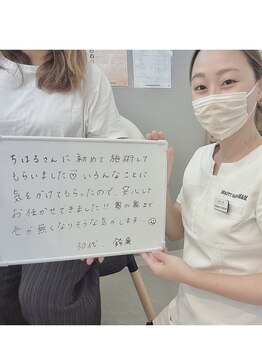 ちはるさんに初めて施術して
もらいました♡いろんなことに
気をかけてもらったので、安心して
お任せできました!! 鼻の奥まで
毛が無くなりそうな気がします…☺
30代、